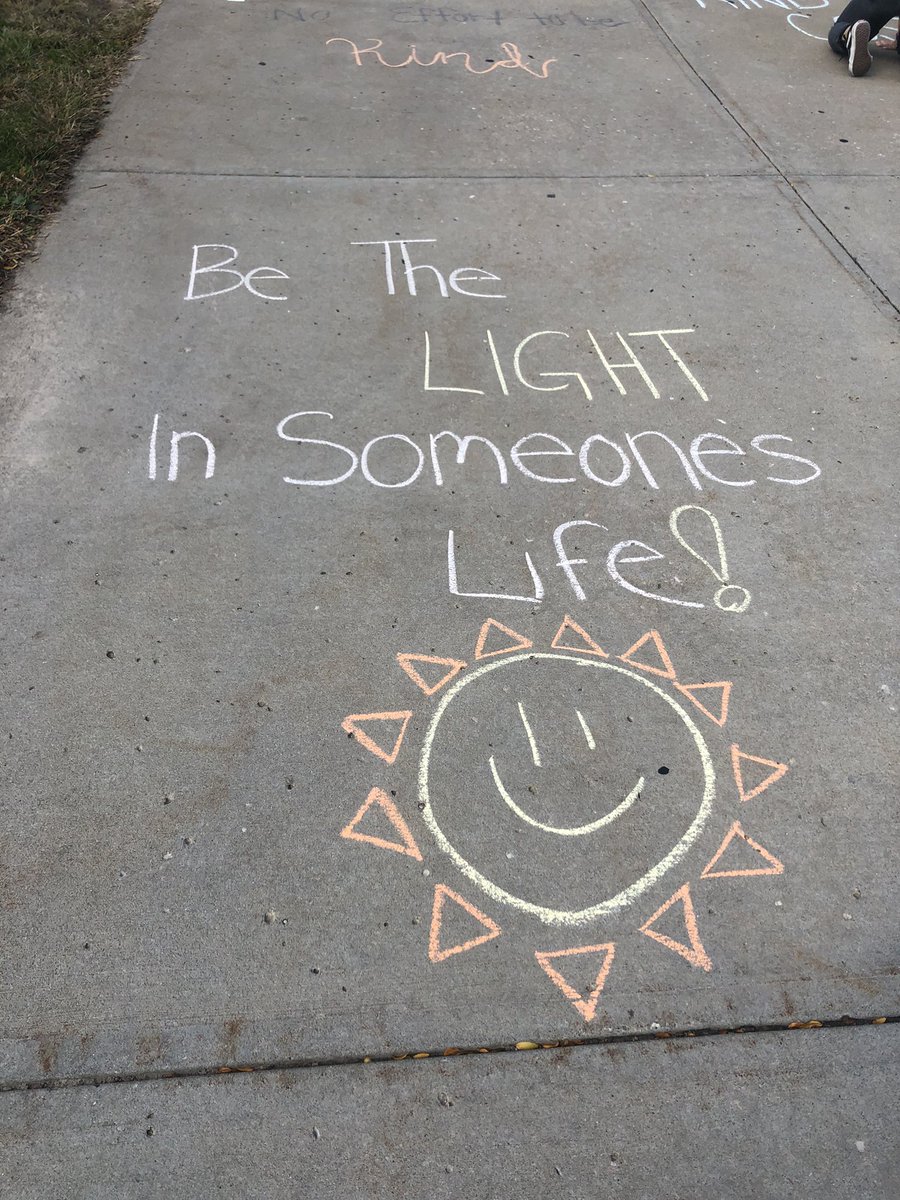 No Effort to be
Kind
KIND
Be The
LIGHT
In Someones
Life!